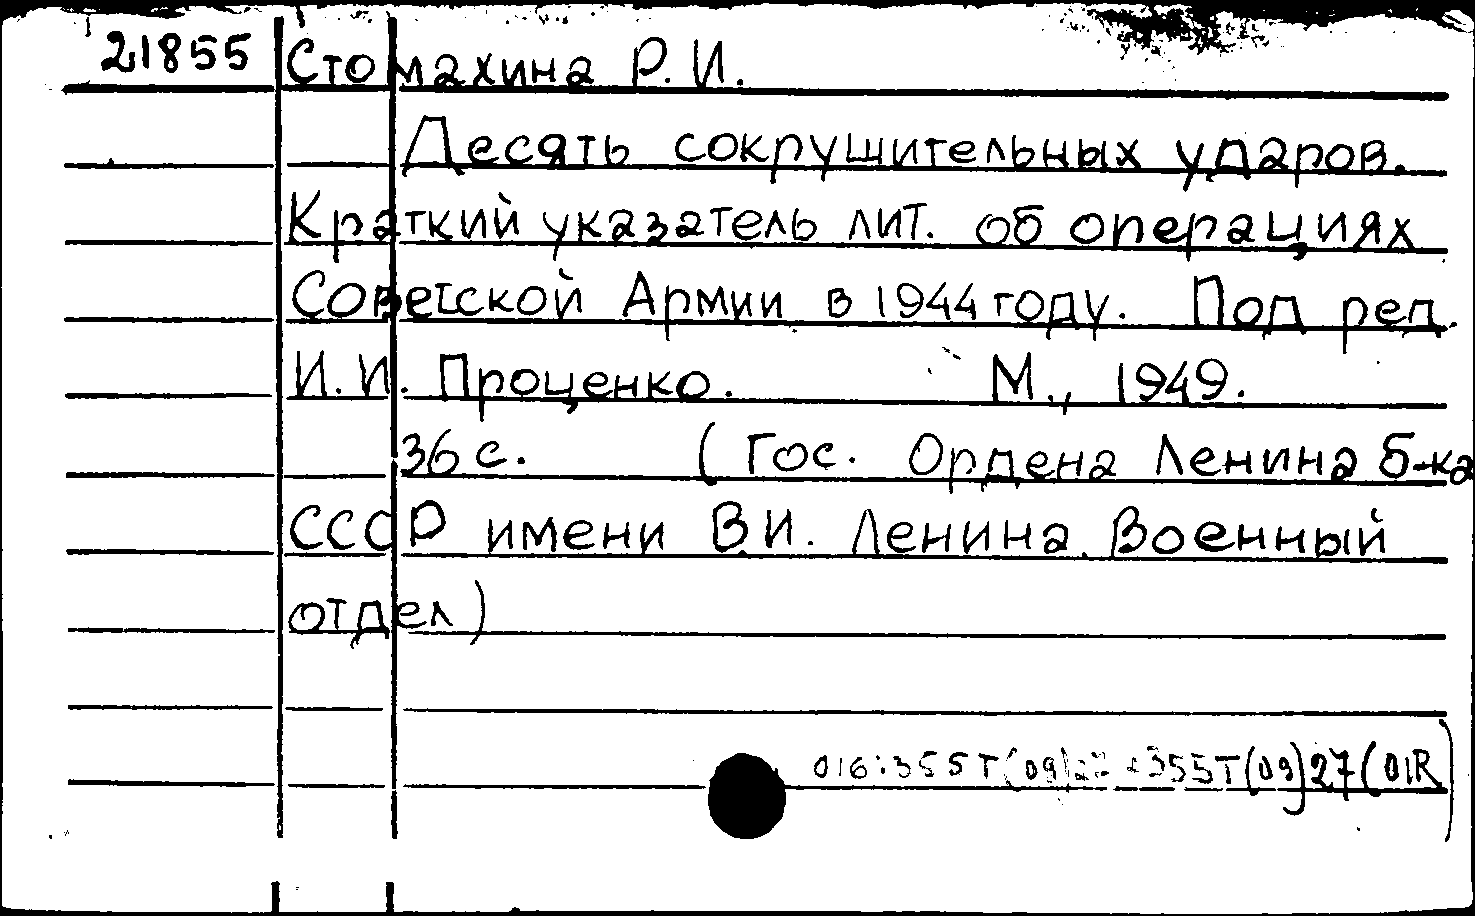 21855 Стомахина Р. И.
Десять сокрушительных ударов.
Краткий указатель лит. об операциях
Советской Армии в 1944 году. Под ред.
И. И. Проценко. М., 1949.
36 с. (Гос. Ордена Ленина б-ка
СССР имени В.И. Ленина. Военный
отдел)
016:355Т(09)27 355Т(09)27(01R)